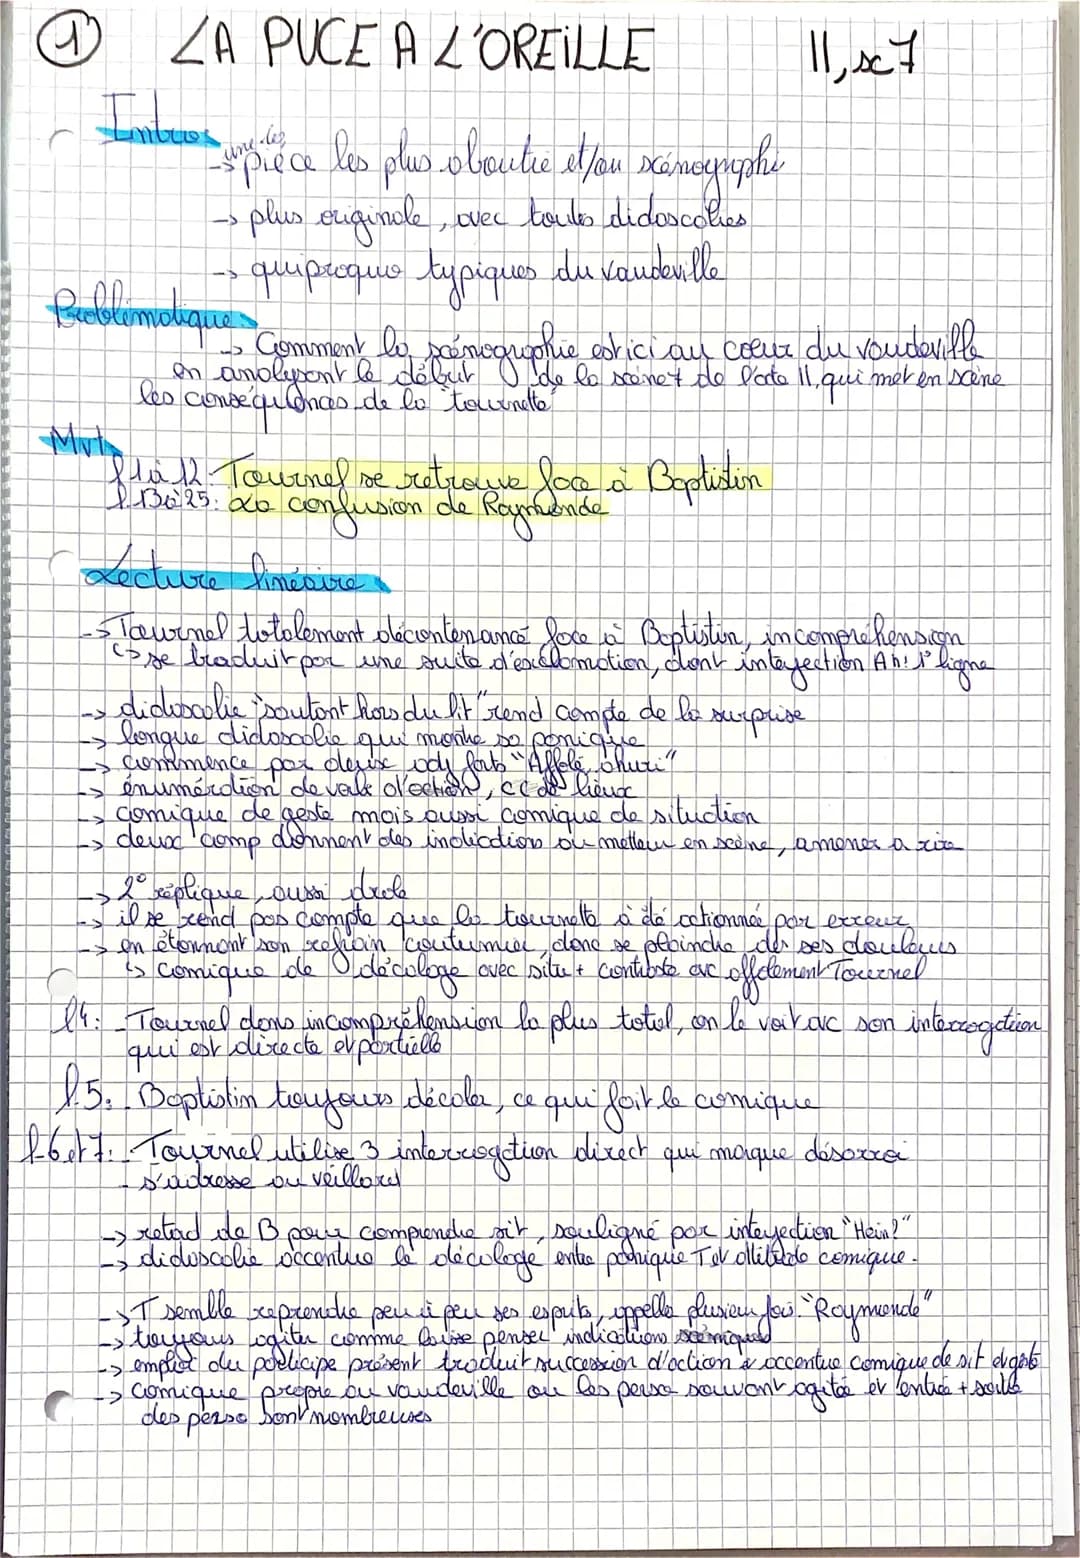 ① LA PUCE A L'OREILLE II, sc7
Intro:
une des
→ pièce les plus aboutie et/ou scénographi
→ plus originale, avec toutes didascalies
→ quiproquo typiques du vaudeville
Problématique:
→ Comment la scénographie est ici au coeur du vaudeville
en analysant le début de la scène 7 de l'acte II, qui met en scène
les conséquences de la "tournette"
Mvt
l 1 à 12: Tournel se retrouve face à Baptistin
l 13 à 25: La confusion de Raymonde
Lecture linéaire
→ Tournel totalement décontenancé face à Baptistin, incompréhension
↳ se traduit par une suite d'exclamation, dont interjection Ah! 1° ligne
→ didascalie "sautant hors du lit" rend compte de la surprise
→ longue didascalie qui montre sa panique
→ commence par deux adj forts "Affolé, ahuri"
→ énumération de verbe d'action, cc de lieux
→ comique de geste mais aussi comique de situction
→ deux comp donnent des indication au metteur en scène, amener a rire
→ 2° réplique, aussi drole
→ il se rend pas compte que la tournette à été actionnée par erreur
→ en étonnant son refrain coutumier, donc se plaindre de ses douleurs
↳ comique de décalage avec situ + contraste avc affolement Tournel
l4: - Tournel dans incompréhension la plus total, on le voit avc son interrogation
qui est directe et partielle
l.5: - Baptistin toujours décaler, ce qui fait le comique
l-6 et 7: - Tournel utilise 3 interrogation direct qui marque désarroi
- s'adresse au vieillard
→ retard de B pour comprendre sit, souligné par interjection "Hein?"
→ didascalie accentue le décalage entre panique T et attitude comique.
→ T semble reprendre peu à peu ses esprits, appelle plusieurs fois "Raymonde"
→ toujours agiter comme laisse penser indications scéniques
→ emploi du participe présent traduit succession d'action & accentue comique de sit et geste
→ comique propre au vaudeville ou les perso souvent agité et entrée + sortie
des perso sont nombreuses